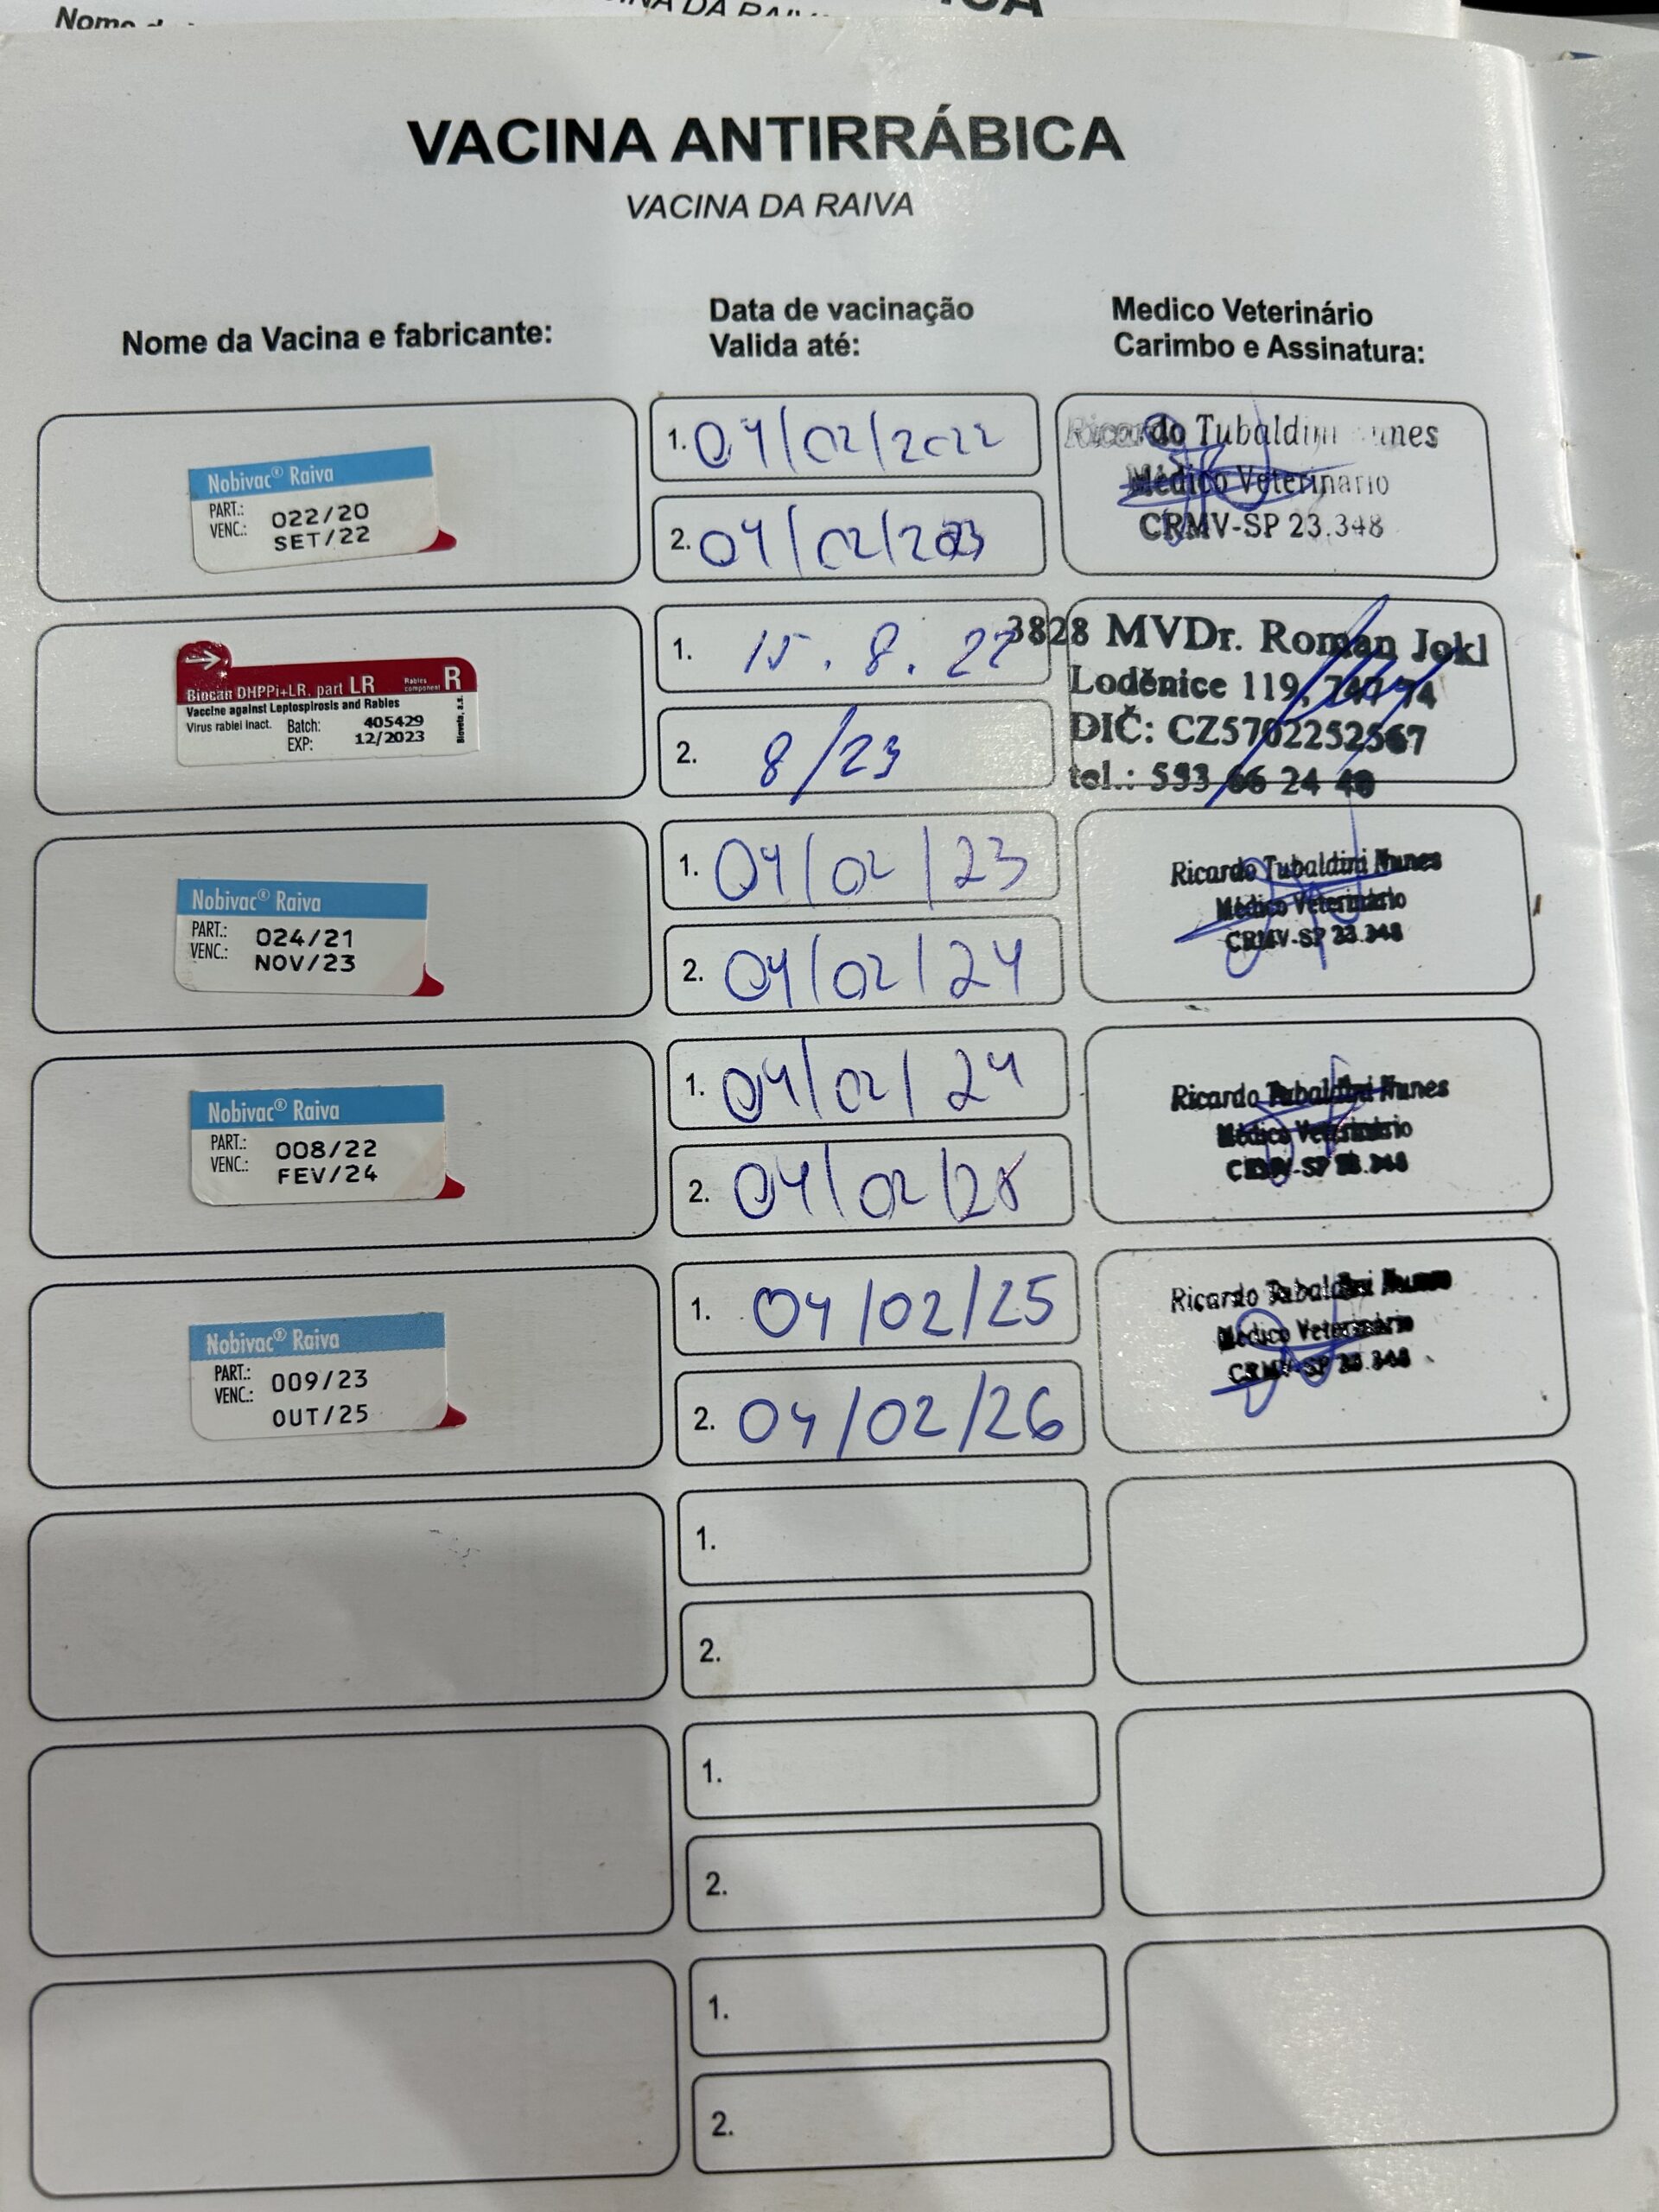 VACINA ANTIRRÁBICA
VACINA DA RAIVA
Nome da Vacina e fabricante:
Data de vacinação
Valida até:
Medico Veterinário
Carimbo e Assinatura:
Nobivac® Raiva
PART.: 022/20
VENC.: SET/22
1. 04/02/2022
2. 04/02/2023
Ricardo Tubaldini
Médico Veterinario
CRMV-SP 23.348
Biocan DHPPi+LR, part LR Rabies component R
Vaccine against Leptospirosis and Rabies
Virus rabiei inact. Batch: 405429
EXP: 12/2023
Bioveta, a.s.
1. 15. 8. 22
2. 8/23
3828 MVDr. Roman Jokl
Loděnice 119, 747 74
DIČ: CZ5702252567
tel.: 553 66 24 40
Nobivac® Raiva
PART.: 024/21
VENC.: NOV/23
1. 04/02/23
2. 04/02/24
Ricardo Tubaldini Nunes
Médico Veterinário
CRMV-SP 23.348
Nobivac® Raiva
PART.: 008/22
VENC.: FEV/24
1. 04/02/24
2. 04/02/25
Ricardo Tubaldini Nunes
Médico Veterinário
CRMV-SP 23.348
Nobivac® Raiva
PART.: 009/23
VENC.: OUT/25
1. 04/02/25
2. 04/02/26
Ricardo Tubaldini Nunes
Médico Veterinário
CRMV-SP 23.348
1.
2.
1.
2.
1.
2.